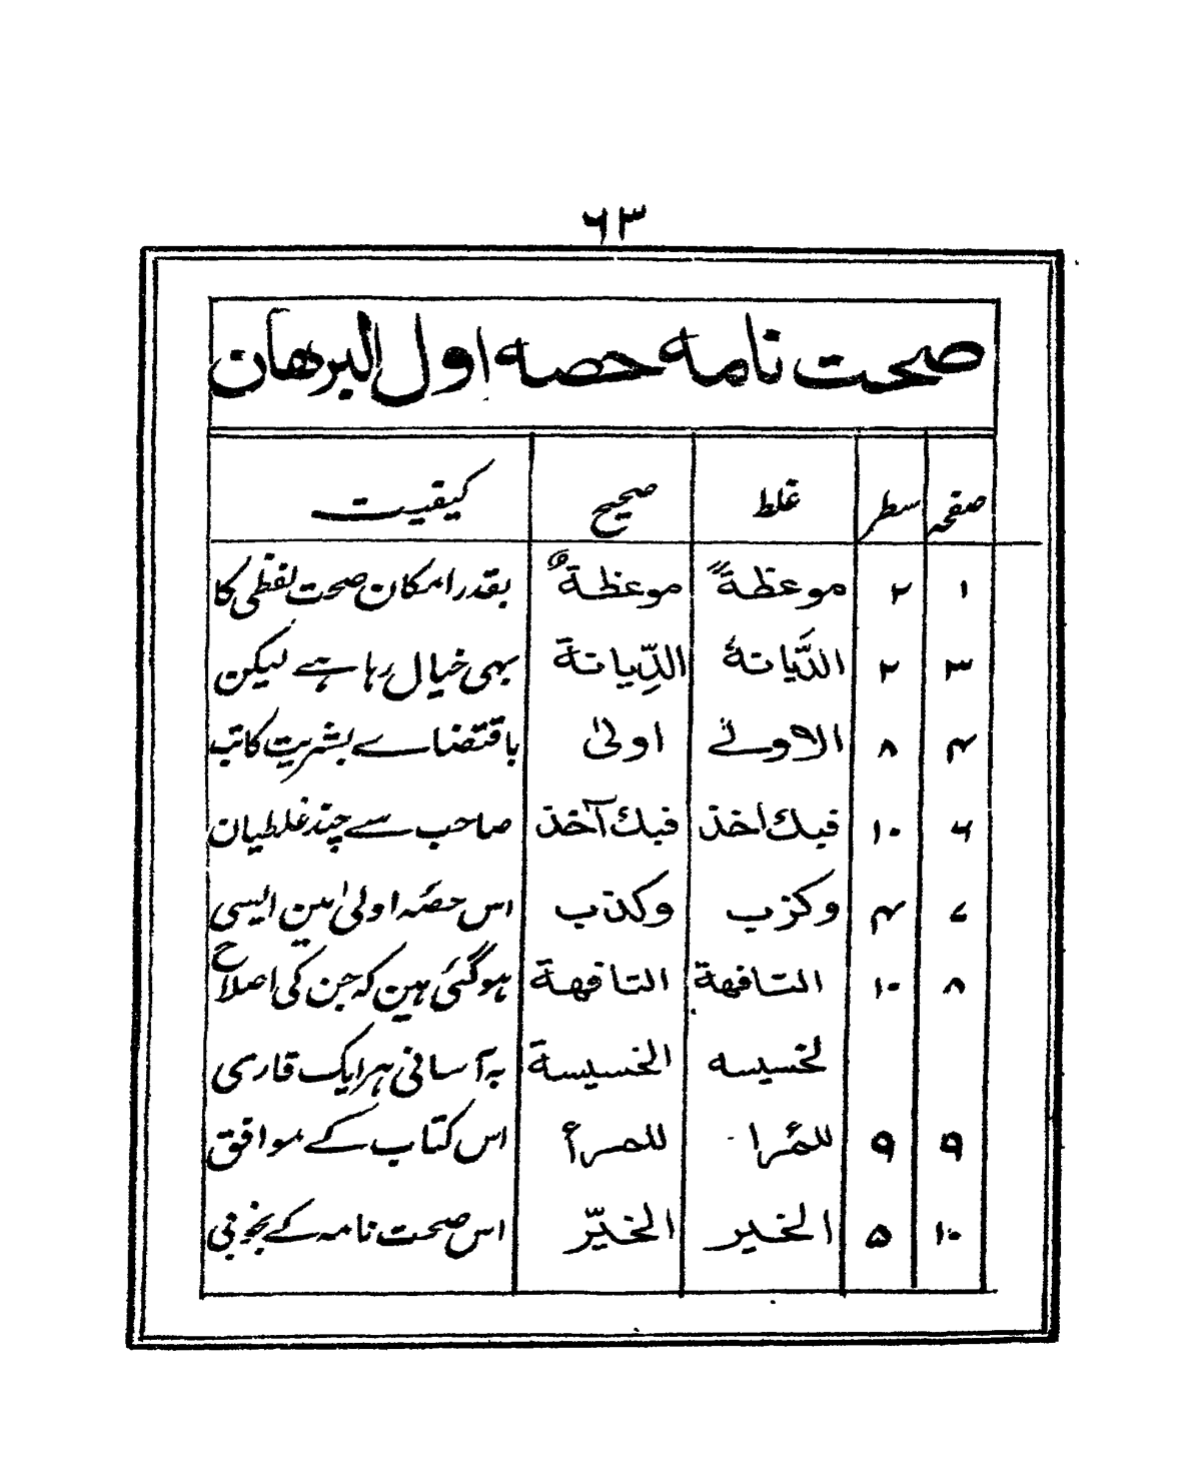 ۶۳
صحت نامہ حصہ اول البرھان
صفحہ سطر غلط صحیح کیفیت
۱ ۲ موعظةً موعظةٌ بقدر امکان صحت لفظی کا
۳ ۲ الدَّیانةُ الدِّیانة بھی خیال رہا ہے لیکن
۴ ۸ الاولے اولیٰ باقتضاے بشریت کاتب
۶ ۱۰ فبك اخذ فبك آخذ صاحب سے چند غلطیان
۷ ۴ وکزب وکذب اس حصّہ اولیٰ مین ایسی
۸ ۱۰ التافهة التافهة ہوگئی ہین کہ جن کی اصلاح
لخسیسه الخسیسة بہ آسانی ہر ایک قاری
۹ ۹ للمرا للمرأ اس کتاب کے موافق
۱۰ ۵ الخیر الخیّر اس صحت نامہ کے بخوبی